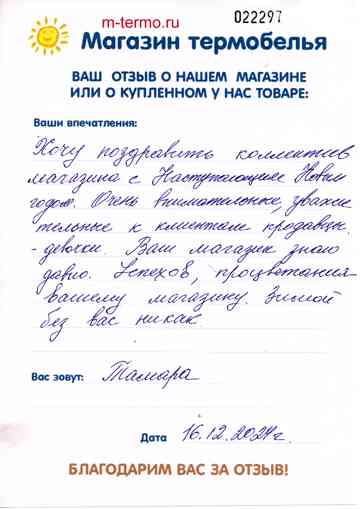 m-termo.ru
022297
Магазин термобелья
ВАШ ОТЗЫВ О НАШЕМ МАГАЗИНЕ
ИЛИ О КУПЛЕННОМ У НАС ТОВАРЕ:
Ваши впечатления:
Хочу поздравить коллектив
магазина с Наступающим Новым
годом. Очень внимательные, уважи
тельные к клиентам продавцы
- девочки. Ваш магазин знаю
давно. Успехов, процветания
Вашему магазину. Зимой
без вас никак.
Вас зовут: Тамара
Дата 16.12.2024г.
БЛАГОДАРИМ ВАС ЗА ОТЗЫВ!